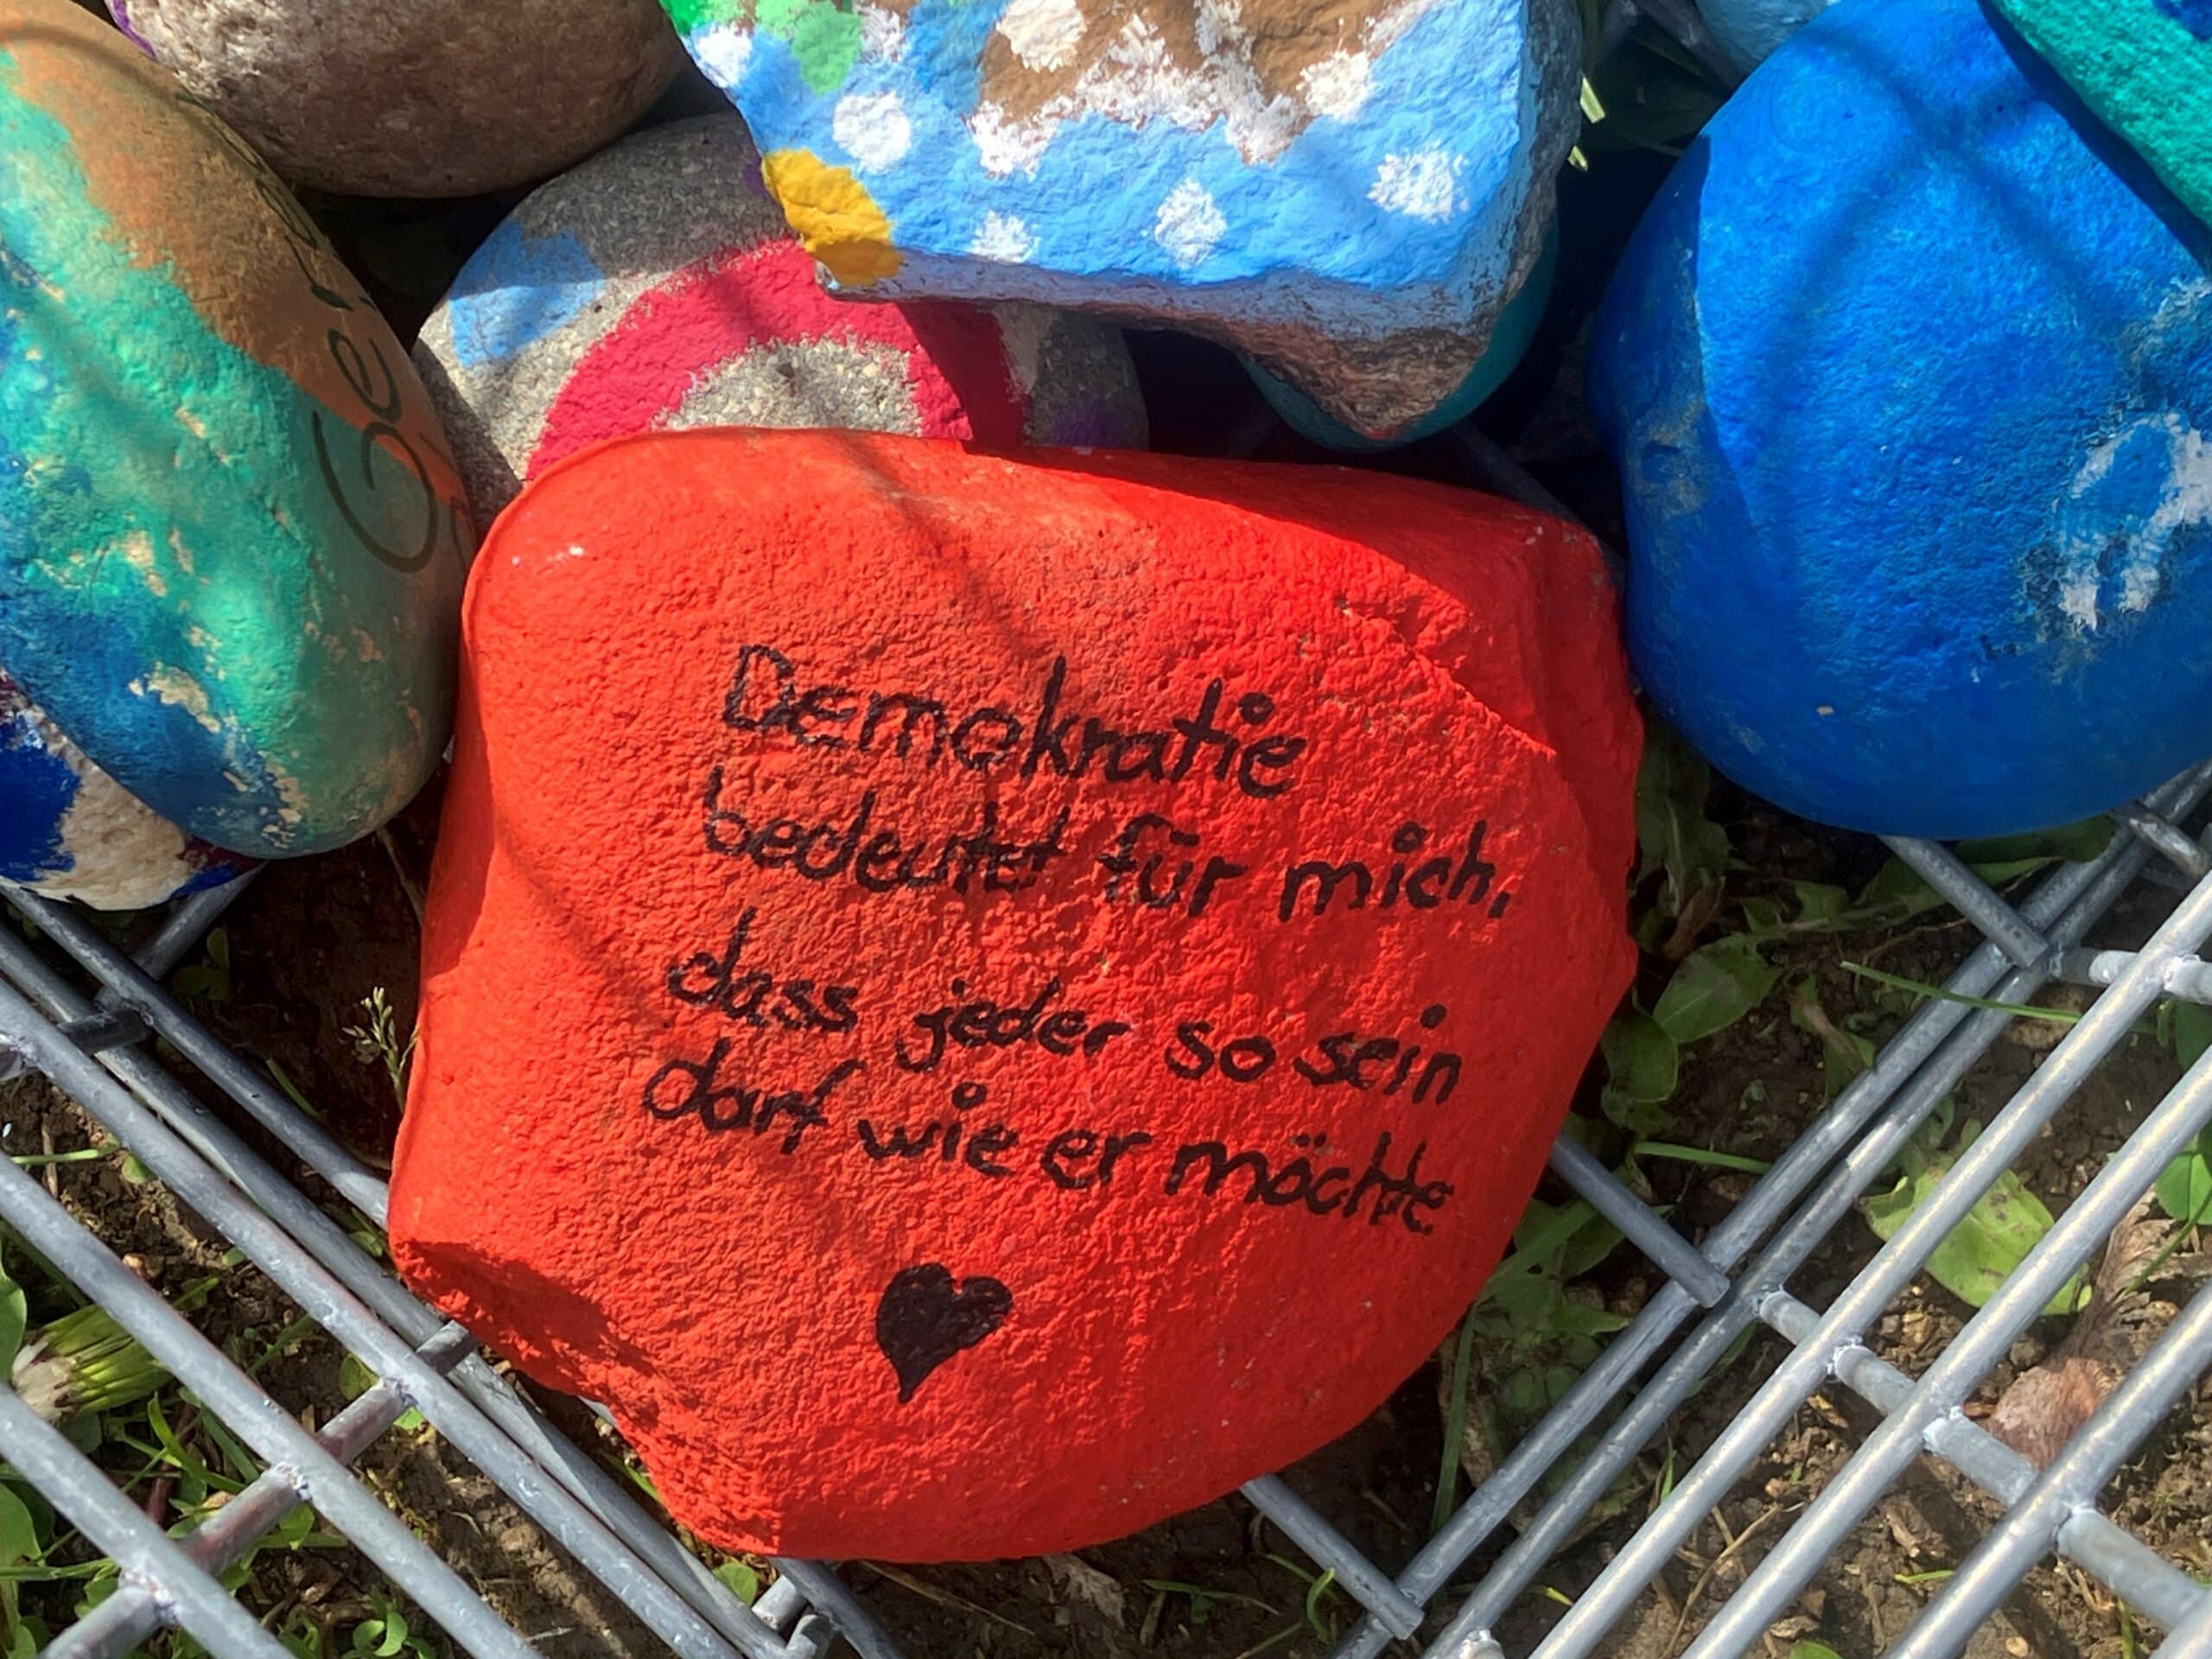 Demokratie
bedeutet für mich,
dass jeder so sein
darf wie er möchte